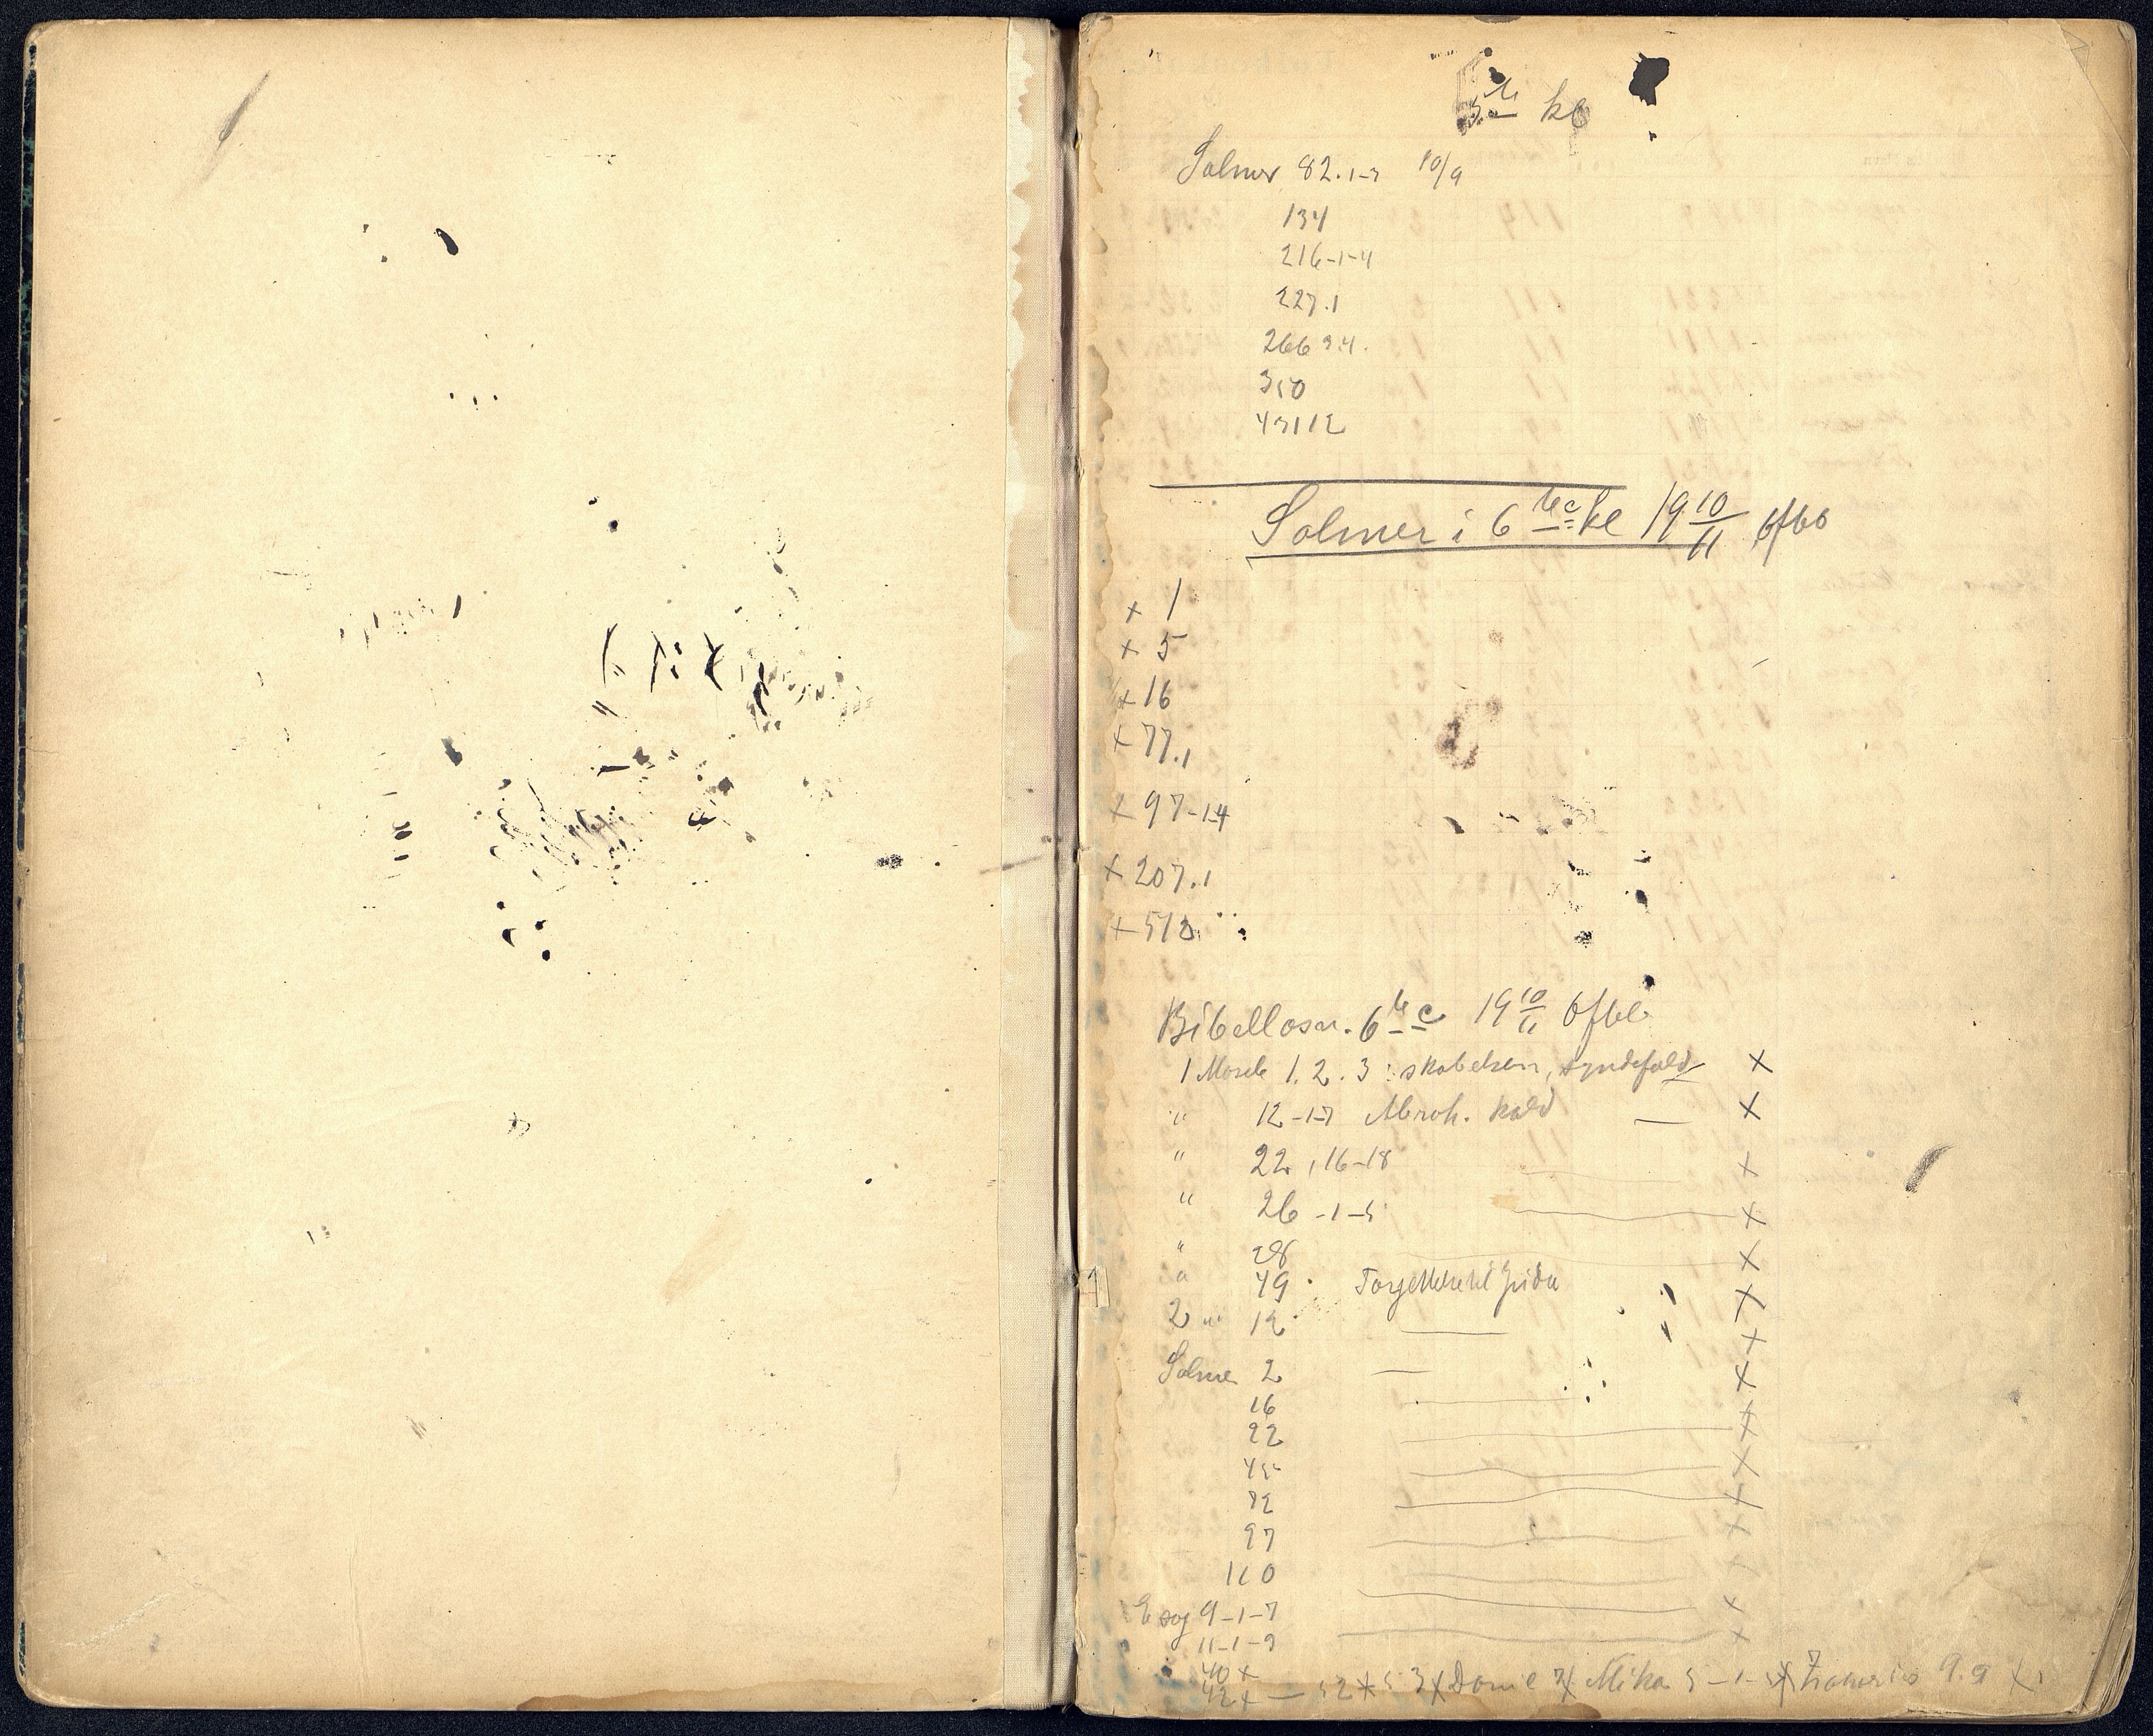 5te kl
Salmer 82.1-3 10/9
134
216-1-4
227.1
266 3.4.
350
43112
Salmer i 6te c kl 1910/11
x 1
x 5
x 16
x 77.1
x 97-1-4
x 207.1
x 510
Bibellæsn. 6te c 1910/11
1 Moseb 1. 2. 3 : skabelsen, syndefald x
" 12-1-7 Abrah. kald — x
" 22, 16-18 x
" 26-1-5 x
" 28 x
" 49 x
2 " 12 x
Salme 2 — x
16 x
22 x
45 x
72 x
97 x
110
Esaj 9-1-7 x
11-1-9 x
40 x
42 x — 52 x 53 x Danie 7 x Mika 5-1- x Zakarias 9.9 x